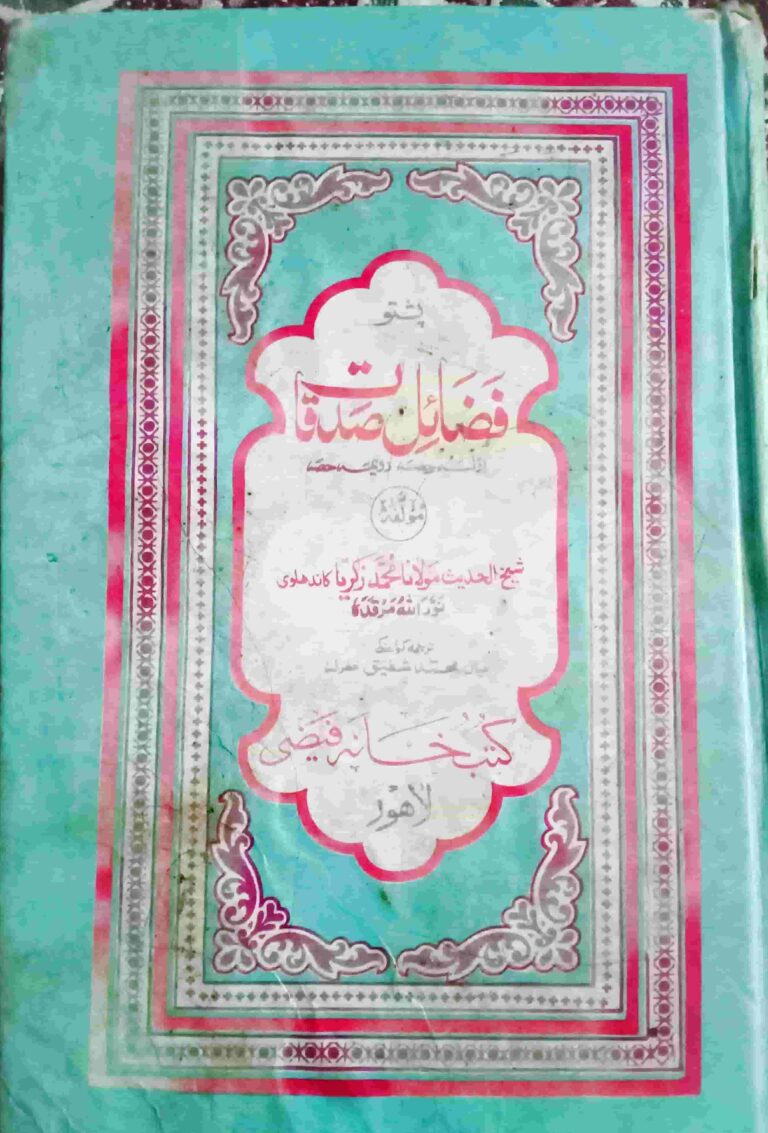 پشتو
فَضَائِل صَدقَات
اوله حصه دویمه حصه
مؤلفهٔ
شیخ الحدیث مَولَانا مُحمَّد زکریا کاندھلوی
نَوَّرَ اللّٰهُ مَرْقَدَهٗ
ترجمه
محمد شفیق
کُتبُ خَانه فیَضی
لاھور